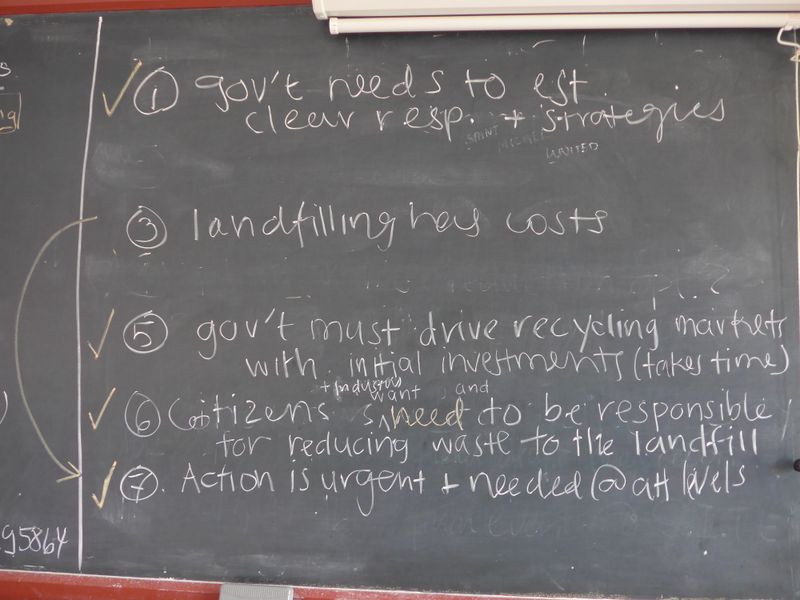 ① gov't needs to est.
clear resp. + strategies
WANTED
③ landfilling has costs
⑤ gov't must drive recycling markets
with initial investments (takes time)
+ industry want and
⑥ Citizens need to be responsible
for reducing waste to the landfill
⑦. Action is urgent + needed @ all levels
95864